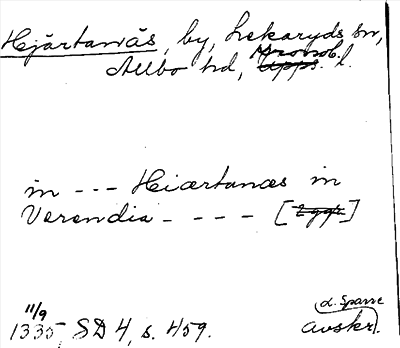 Hjärtanäs, by, Lekaryds sn,
Allbo hd, Kronob. l.
in --- Hiærtanæs in
Verendia - - - - [ ]
11/9
1335, SD 4, s. 459.
d. Sparre
avskr.